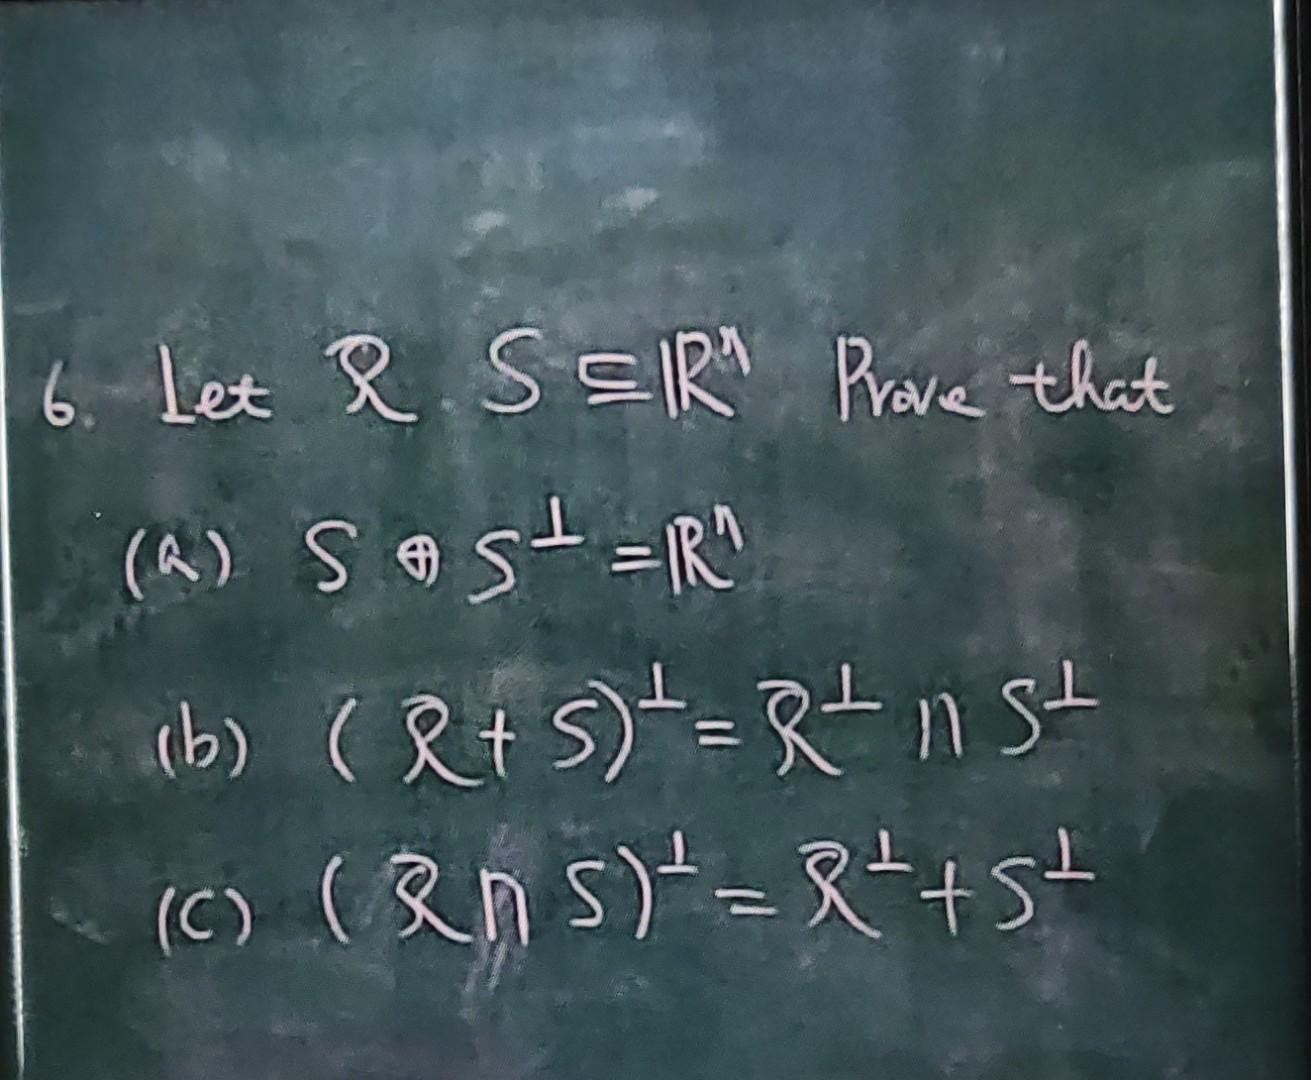 6. Let R S ⊆ ℝⁿ Prove that
(a) S ⊕ S^⊥ = ℝⁿ
(b) (R + S)^⊥ = R^⊥ ∩ S^⊥
(c) (R ∩ S)^⊥ = R^⊥ + S^⊥